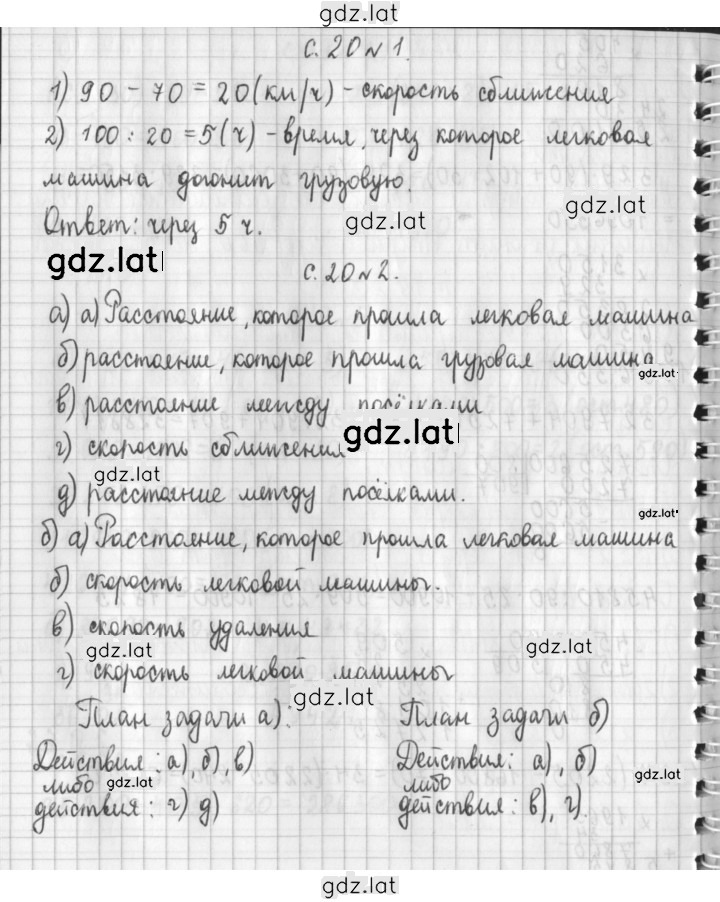 gdz.lat
с. 20 № 1.
1) 90 - 70 = 20 (км/ч) - скорость сближения
2) 100 : 20 = 5 (ч) - время, через которое легковая
машина догонит грузовую.
gdz.lat
Ответ: через 5 ч.
gdz.lat
gdz.lat
с. 20 № 2.
а) а) Расстояние, которое прошла легковая машина
б) расстояние, которое прошла грузовая машина
gdz.lat
в) расстояние между посёлками
gdz.lat
г) скорость сближения
gdz.lat
д) расстояние между посёлками.
gdz.lat
б) а) Расстояние, которое прошла легковая машина
б) скорость легковой машины.
в) скорость удаления
gdz.lat
gdz.lat
г) скорость легковой машины
gdz.lat
План задачи а): План задачи б)
Действия: а), б), в) Действия: а), б)
либо gdz.lat либо gdz.lat
действия: г) д) действия: в), г).
gdz.lat